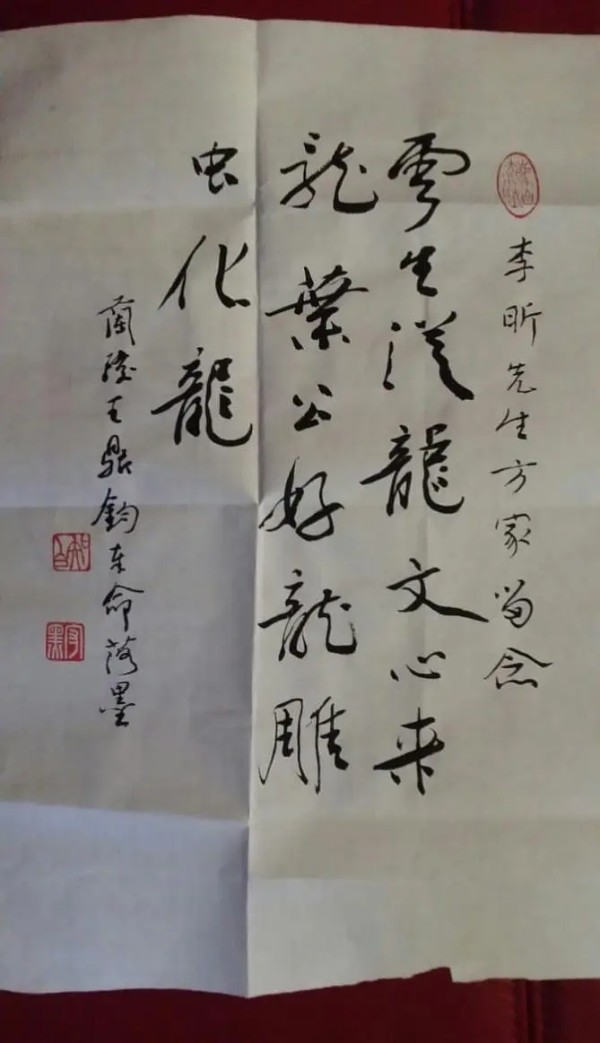 李昕先生方家留念
雲生從龍文心来
龍葉公好龍雕
虫化龍
蘭陵王鼎鈞奉命落墨
知白
守黑